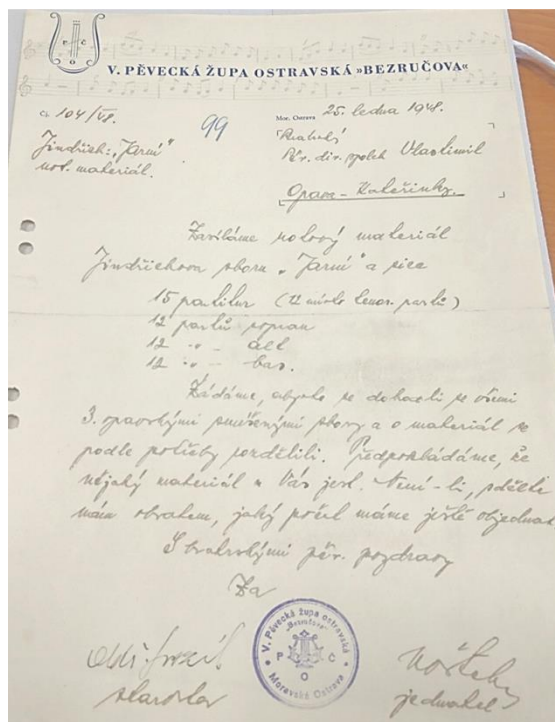 P Č
O
V. PĚVECKÁ ŽUPA OSTRAVSKÁ »BEZRUČOVA«
Čj. 104/48.
99
Mor. Ostrava 25. ledna 1948.
Jindřich: „Jarní“
not. materiál.
Pěv. dir. spolek Vlastimil
Opava - Kateřinky.
Zasíláme notový materiál
Jindřichova sboru „Jarní“ a sice
15 partitur (12 místo tenor. partů)
12 partů sopran
12 -„- alt
12 -„- bas.
Žádáme, abyste se dohodli se všemi
3. opavskými smíšenými sbory a o materiál se
podle potřeby rozdělili. Předpokládáme, že
nějaký materiál u Vás jest. Není-li, sdělte
nám obratem, jaký počet máme ještě objednat
S bratrskými pěv. pozdravy
Za
V. Pěvecká župa ostravská
„Bezručova“
P Č
O
Moravská Ostrava
starosta
jednatel